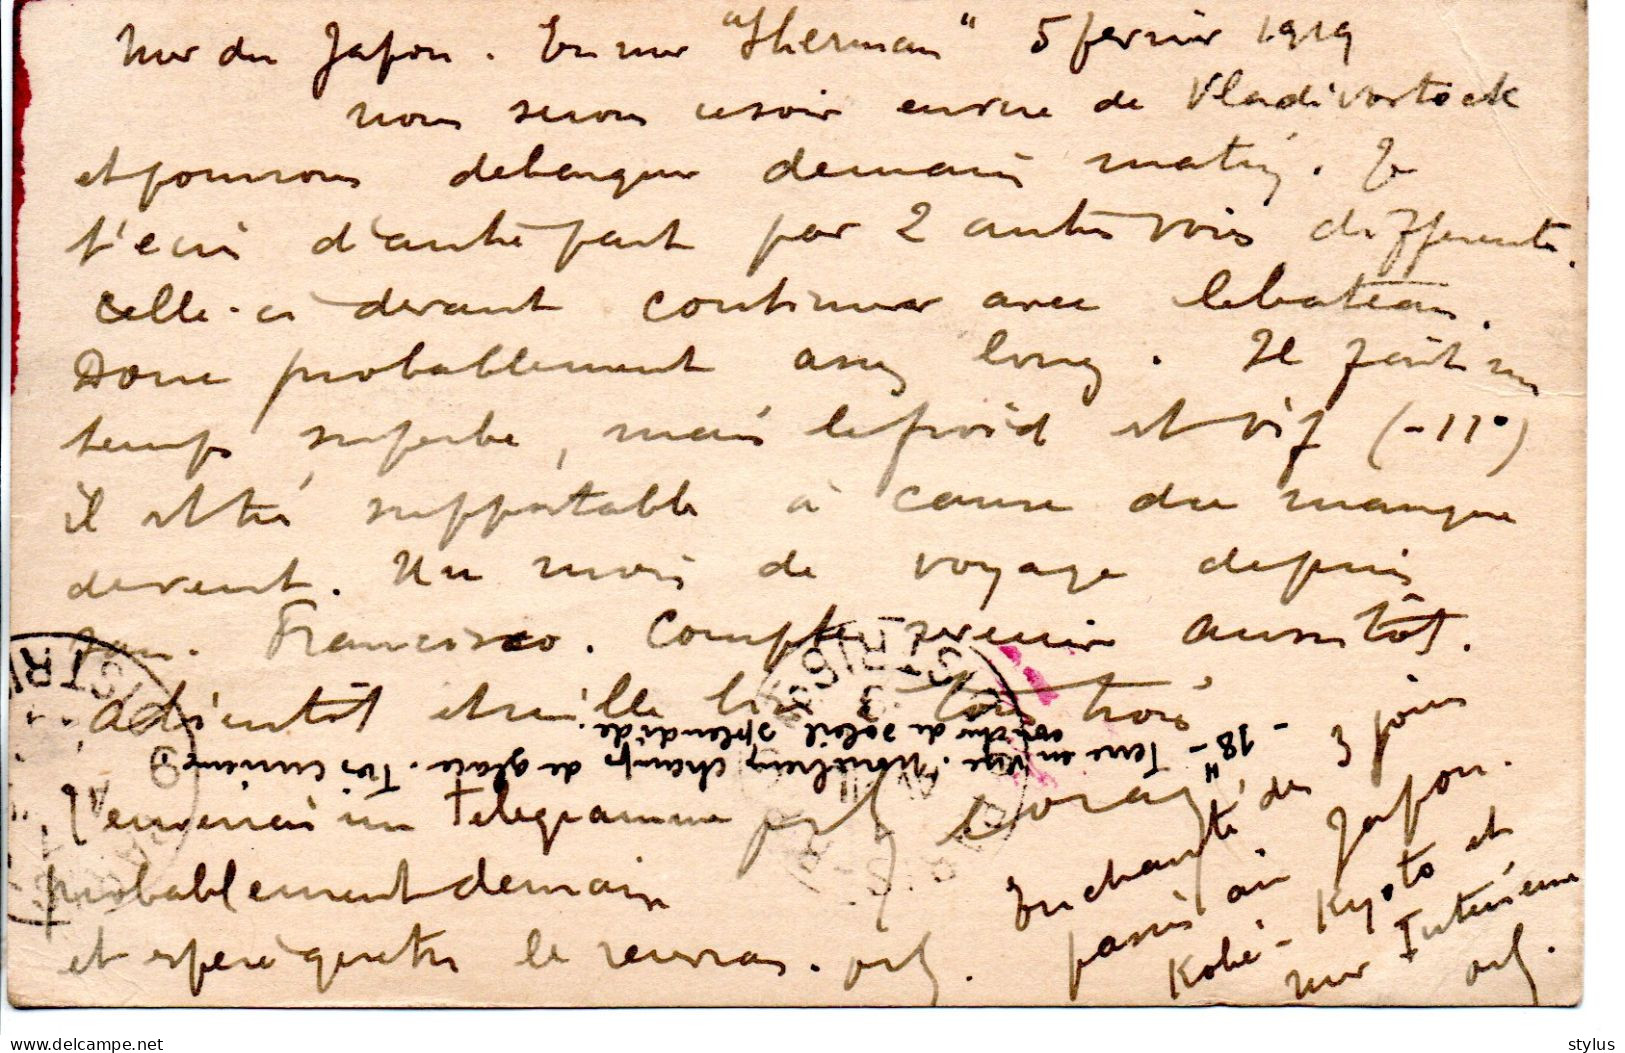 Mer du Japon. En mer "Sherman" 5 fevrier 1919
nous serons ce soir en vue de Vladivostock
et pourrons debarquer demain matin. Je
t'ecris d'autre part par 2 autres voies differentes.
Celle-ci devant continuer avec le bateau.
Donc probablement assez long. Il fait un
temps superbe, mais le froid est vif (-11°)
il est très supportable à cause du manque
de vent. Un mois de voyage depuis
San. Francisco. Compte revenir aussitôt.
A bientôt et mille
tous trois
-18- Terre en vue. champs de glace. Très curieux
de soleil splendide.
T'enverrai un Telegramme
probablement demain
et espère que tu le recevras.
Enchanté des 3 jours
passés au Japon.
Kobé - Kyoto et
mer Interieure
delcampe.net
stylus